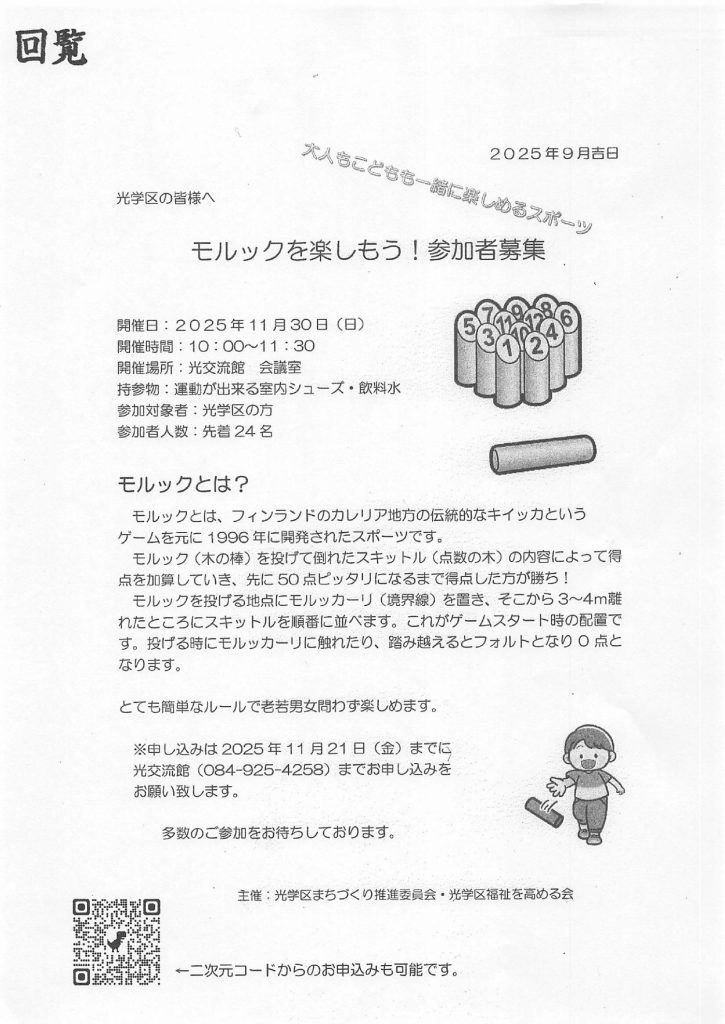 回覧
2025年9月吉日
大人もこどもも一緒に楽しめるスポーツ
光学区の皆様へ
モルックを楽しもう！参加者募集
開催日：2025年11月30日（日）
開催時間：10：00～11：30
開催場所：光交流館　会議室
持参物：運動が出来る室内シューズ・飲料水
参加対象者：光学区の方
参加者人数：先着24名
5 7 9 8 6
3 11 10 12 4
1 2
モルックとは？
モルックとは、フィンランドのカレリア地方の伝統的なキイッカという
ゲームを元に1996年に開発されたスポーツです。
モルック（木の棒）を投げて倒れたスキットル（点数の木）の内容によって得
点を加算していき、先に50点ピッタリになるまで得点した方が勝ち！
モルックを投げる地点にモルッカーリ（境界線）を置き、そこから3～4m離
れたところにスキットルを順番に並べます。これがゲームスタート時の配置で
す。投げる時にモルッカーリに触れたり、踏み越えるとフォルトとなり0点と
なります。
とても簡単なルールで老若男女問わず楽しめます。
※申し込みは2025年11月21日（金）までに
光交流館（084-925-4258）までお申し込みを
お願い致します。
多数のご参加をお待ちしております。
主催：光学区まちづくり推進委員会・光学区福祉を高める会
←二次元コードからのお申込みも可能です。